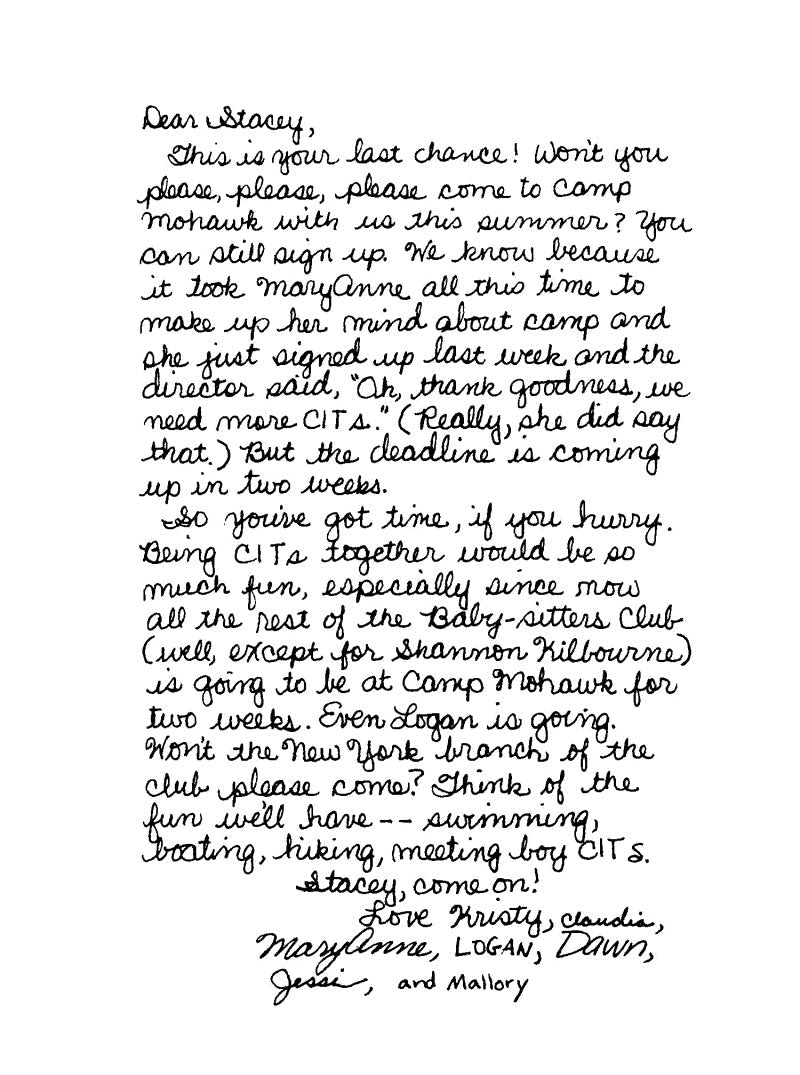 Dear Stacey,
This is your last chance! Won't you
please, please, please come to Camp
Mohawk with us this summer? You
can still sign up. We know because
it took Mary Anne all this time to
make up her mind about camp and
she just signed up last week and the
director said, "Oh, thank goodness, we
need more CITs." (Really, she did say
that.) But the deadline is coming
up in two weeks.
So you've got time, if you hurry.
Being CITs together would be so
much fun, especially since now
all the rest of the Baby-sitters Club
(well, except for Shannon Kilbourne)
is going to be at Camp Mohawk for
two weeks. Even Logan is going.
Won't the New York branch of the
club please come? Think of the
fun we'll have -- swimming,
boating, hiking, meeting boy CITs.
Stacey, come on!
Love Kristy, Claudia,
Mary Anne, LOGAN, Dawn,
Jessi, and Mallory